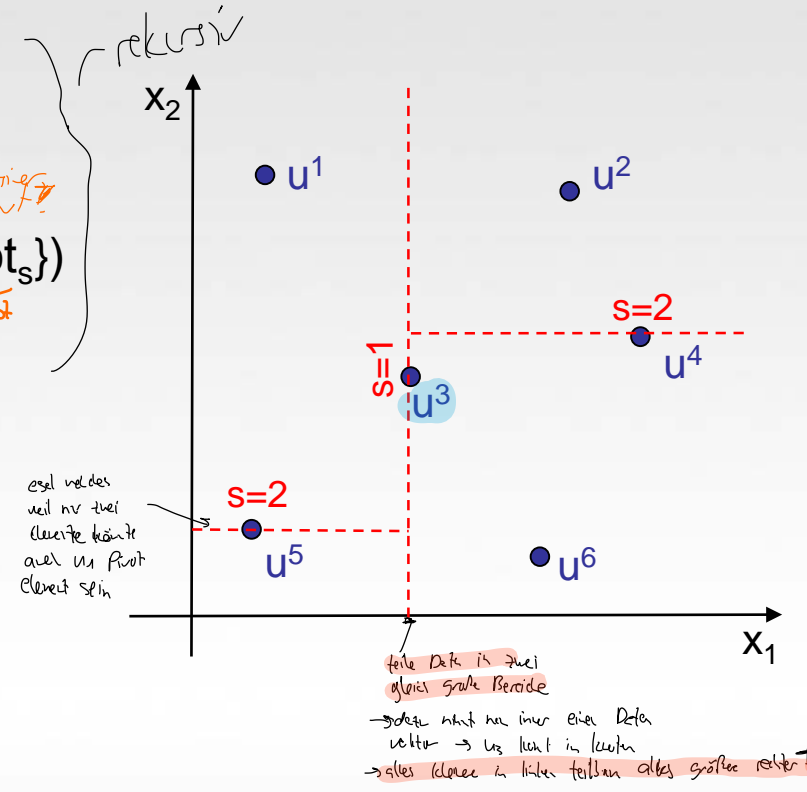 rekursiv
x₂
u¹
u²
t_s})
s=2
s=1
u⁴
u³
egal welches
weil nur zwei
Elemente könnte
auch u₁ Pivot
Element sein
s=2
u⁵
u⁶
x₁
teile Daten in zwei
gleich große Bereiche
→ dazu nimmt man immer einen Daten
vektor → u₃ kommt in Knoten
→ alles kleinere in linken teilbaum alles größer rechter